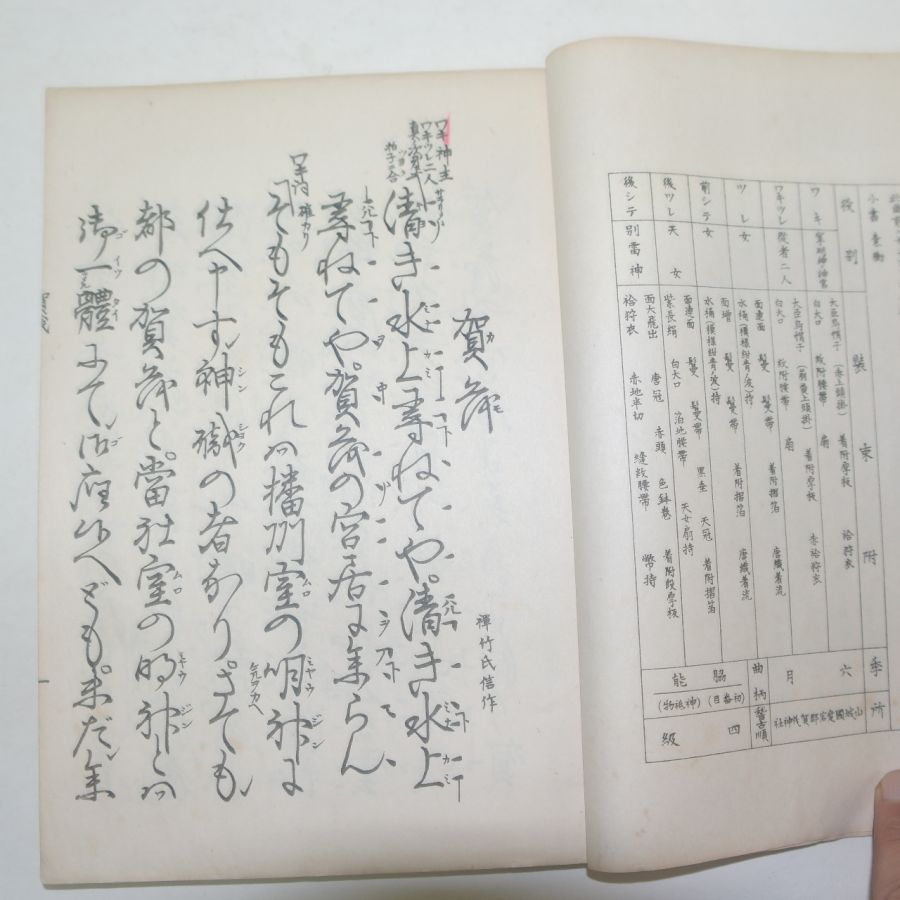 小書 素働
役別 装束附 季所
ワキ 室明神神官 大臣烏帽子(赤上頭掛) 着附厚板 袷狩衣 白大口 紋附腰帯 扇
ワキツレ 従者二人 大臣烏帽子 着附厚板 赤袷狩衣 白大口 紋附腰帯 扇
ツレ 女 面連面 鬘 鬘帯 着附摺箔 唐織着流 水桶(模様紺青ノ波)持
前シテ 女 面増 鬘 鬘帯 着附摺箔 唐織着流 水桶(模様紺青ノ波)持
後ツレ 天女 面連面 鬘 鬘帯 黒垂 天冠 着附摺箔 紫長絹 白大口 箔地腰帯 天女扇持
後シテ 別雷神 面大飛出 唐冠 赤頭 色鉢巻 着附段厚板 袷狩衣 赤地半切 縫紋腰帯 幣持
六月
山城國愛宕郡賀茂神社
曲柄 脇能 (初番目)(神祇物)
稽古順 四級
賀茂
カモ
禅竹氏信作
ワキ 神主
ワキツレ二人
真ノ次第
拍子合
清き水上尋ねてや。清き水上
尋ねてや賀茂の宮居に参らん
ワキ詞「そもそもこれハ播州室の明神に
仕へ申す神職の者なり。さても
都の賀茂と。當社室の明神とハ
御一體にて。御座候へども。未だ参
賀茂
一